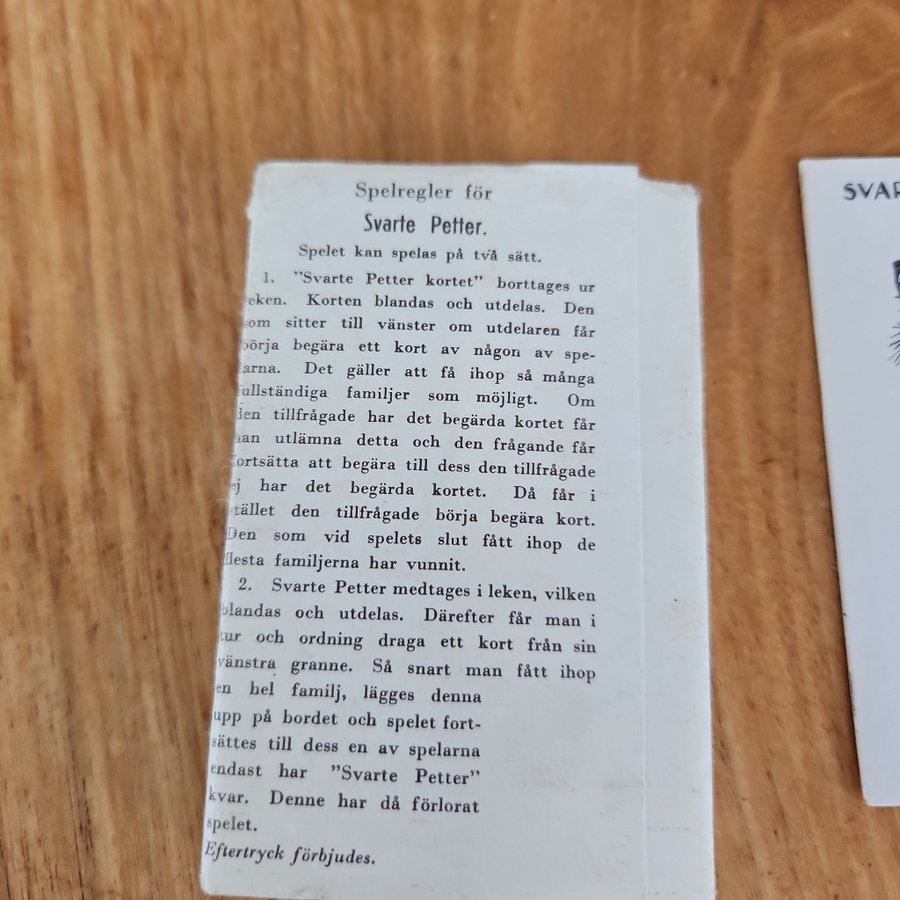 Spelregler för
Svarte Petter.
Spelet kan spelas på två sätt.
1. ”Svarte Petter kortet” borttages ur
eken. Korten blandas och utdelas. Den
om sitter till vänster om utdelaren får
börja begära ett kort av någon av spe-
arna. Det gäller att få ihop så många
fullständiga familjer som möjligt. Om
den tillfrågade har det begärda kortet får
han utlämna detta och den frågande får
fortsätta att begära till dess den tillfrågade
ej har det begärda kortet. Då får i
stället den tillfrågade börja begära kort.
Den som vid spelets slut fått ihop de
flesta familjerna har vunnit.
2. Svarte Petter medtages i leken, vilken
blandas och utdelas. Därefter får man i
tur och ordning draga ett kort från sin
vänstra granne. Så snart man fått ihop
en hel familj, lägges denna
upp på bordet och spelet fort-
sättes till dess en av spelarna
endast har ”Svarte Petter”
kvar. Denne har då förlorat
spelet.
Eftertryck förbjudes.
SVAR